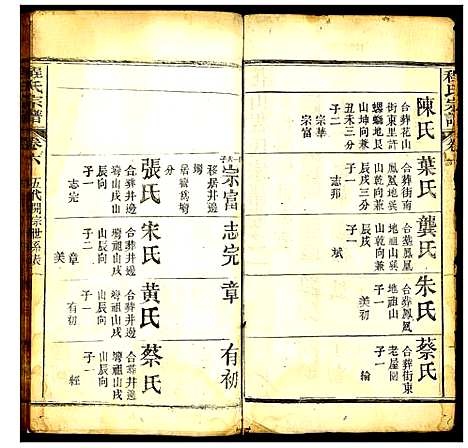 程氏宗譜
卷六
陳氏
合葬花山
街東里許
螺螄地艮
山坤向兼
丑未三分
子二
宗華
宗富
葉氏
合葬街南
鳳凰地
山乾向兼
辰戌三分
子一
志邦
龔氏
合葬鳳凰
地祖山巽
山乾向兼
辰戌
子一
斌
朱氏
合葬鳳凰
地祖山
子一
美初
蔡氏
合葬街東
老屋園
子一
綸
宗富
移居井邊
居舊烏塆
分
張氏
合葬井邊
塆山戌
山辰向
子一
志完
志完
宋氏
合葬井邊
塆祖山戌
山辰向
子二
章
美
章
黃氏
合葬井邊
塆祖山戌
山辰向
子一
有初
有初
蔡氏
合葬井邊
塆祖山戌
山辰向
子一
輕
程氏宗譜
卷六
五代開宗世系表